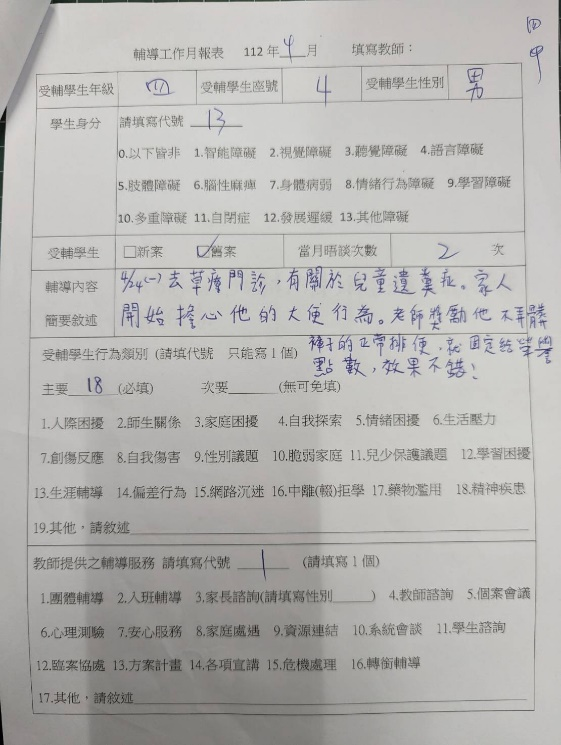 四甲
輔導工作月報表 112 年 4 月 填寫教師：
受輔學生年級 四 受輔學生座號 4 受輔學生性別 男
學生身分 請填寫代號 13
0.以下皆非 1.智能障礙 2.視覺障礙 3.聽覺障礙 4.語言障礙
5.肢體障礙 6.腦性麻痺 7.身體病弱 8.情緒行為障礙 9.學習障礙
10.多重障礙 11.自閉症 12.發展遲緩 13.其他障礙
受輔學生 □新案 ☑舊案 當月晤談次數 2 次
輔導內容 4/24(一)去草療門診，有關於兒童遺糞症。家人
簡要敘述 開始擔心他的大便行為。老師獎勵他不弄髒
褲子的正常排便，就固定給榮譽
點數，效果不錯！
受輔學生行為類別 (請填代號 只能寫 1 個)
主要 18 (必填) 次要 (無可免填)
1.人際困擾 2.師生關係 3.家庭困擾 4.自我探索 5.情緒困擾 6.生活壓力
7.創傷反應 8.自我傷害 9.性別議題 10.脆弱家庭 11.兒少保護議題 12.學習困擾
13.生涯輔導 14.偏差行為 15.網路沉迷 16.中離(輟)拒學 17.藥物濫用 18.精神疾患
19.其他，請敘述
教師提供之輔導服務 請填寫代號 1 (請填寫 1 個)
1.團體輔導 2.入班輔導 3.家長諮詢(請填寫性別 ) 4.教師諮詢 5.個案會議
6.心理測驗 7.安心服務 8.家庭處遇 9.資源連結 10.系統會談 11.學生諮詢
12.臨案協處 13.方案計畫 14.各項宣講 15.危機處理 16.轉銜輔導
17.其他，請敘述